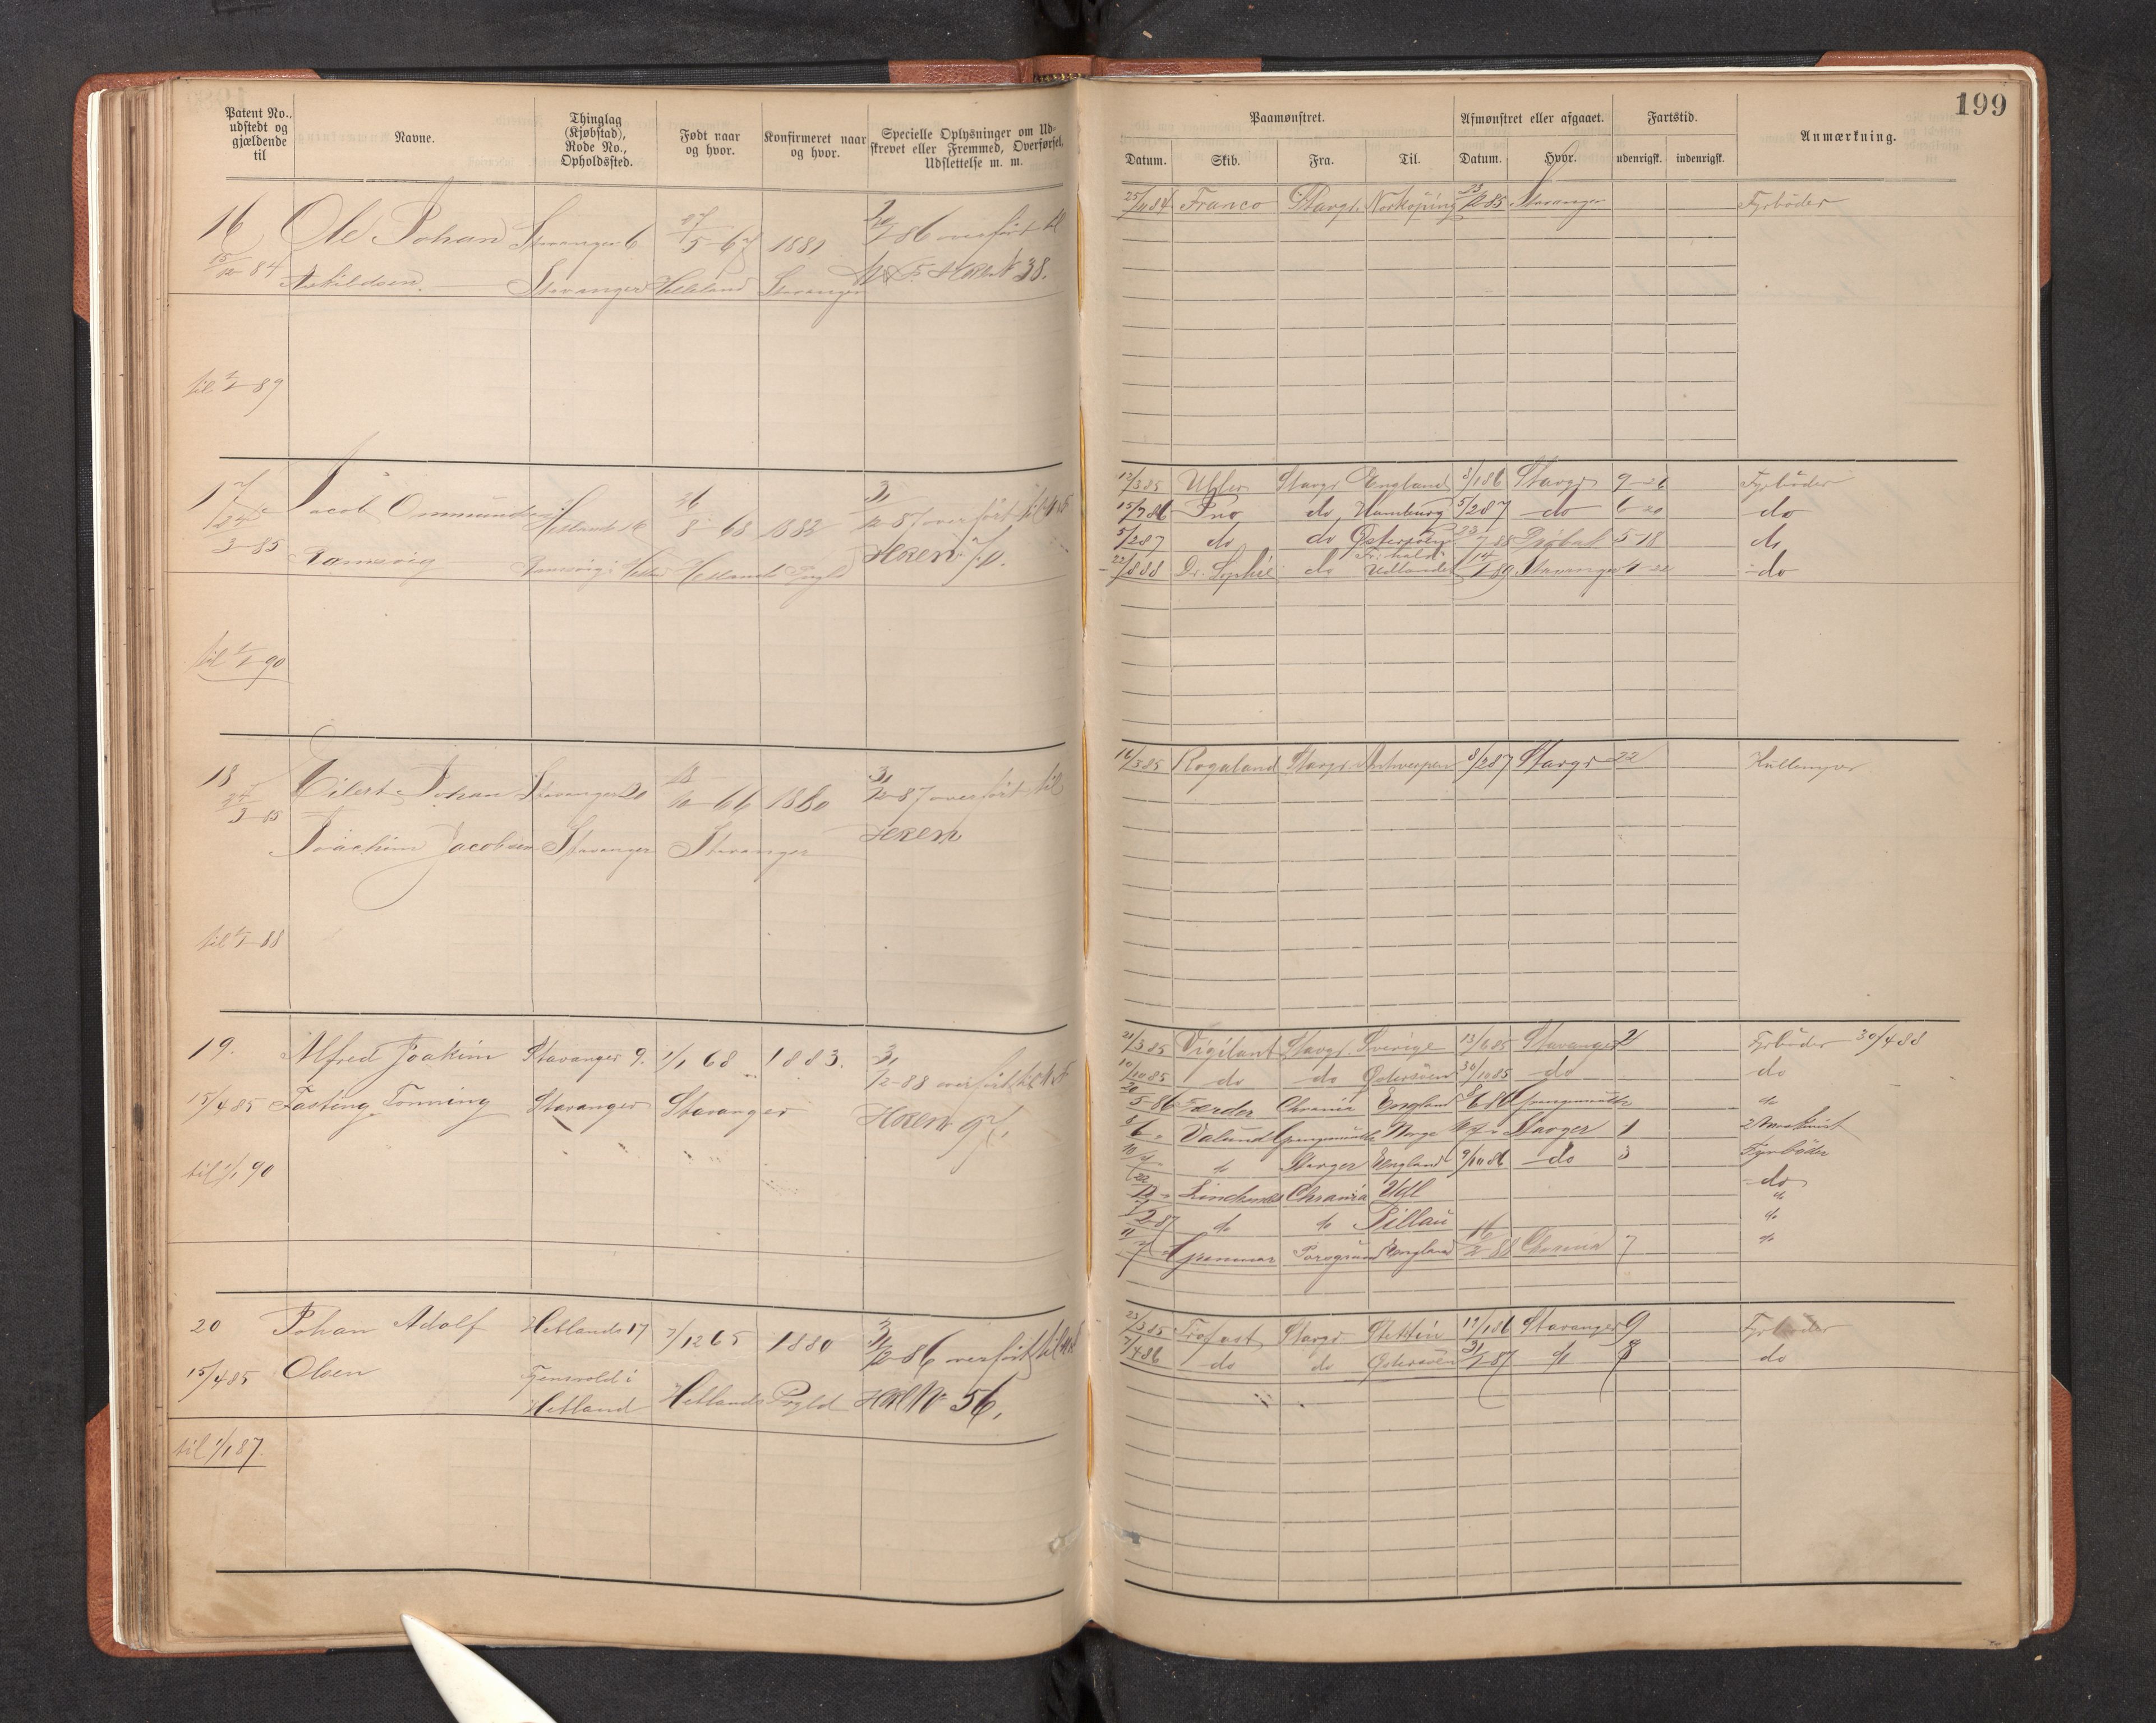 199
Patent No., udstedt og gjældende til
Navne.
Thinglag (Kjøbstad), Rode No., Opholdssted.
Født naar og hvor.
Konfirmeret naar og hvor.
Specielle Oplysninger om Udskrevet eller Fremmed, Overførsel, Udslettelse m. m.
Paamønstret.
Afmønstret eller afgaaet.
Fartstid.
Anmærkning.
Datum. Skib. Fra. Til. Datum. Hvor. udenrigsk. indenrigsk.
16 Ole Johan Stavanger 6 27/5-67 1881 86 overført til
15/12 84 Askildsen. Stavanger Helleland Stavanger 38.
til 1/1 89
25/11 84 Franco Stavgr. Norkøping 85 Stavanger Fyrbøder
17 Jacob Ommund Hetlands 16 8-68 1882 31/12-87 overført til
3-85 Ramsvig Ramsvig i Hetland Hetlands Prgld
til 1/1 90
12/3 85 Uller Stavgr England 3/1 86 Stavgr Fyrbøder
15/7 86 Pno do Hamburg 5/2 87 do 6-20 do
5/2 87 do do Østersøen 88 5-18 do
22/8 88 Dr. Sophie do Udlandet 14/1 89 Stavanger do
18 Eilert Johan Stavanger 20 18/10-66 1880 31/12-87 overført til
24/3-85 Joachim Jacobsen Stavanger Stavanger
til 1/1 88
16/3 85 Rogaland Stavgr Antwerpen 8/2 87 Stavgr 22 Kullemper
19. Alfred Joakim Stavanger 9. 1/1 68 1883. 31/12-88 overført til
15/4 85 Fasting Tonning Stavanger Stavanger 97.
til 1/1 90
21/3 85 Vigilant Stavgr. Sverige 13/6 85 Stavanger 2 Fyrbøder 30/4 88
10/10 85 do do Østersøen 30/10 85 do do
20/5-86 Færder Chrania England Grangemouth do
Grangemouth Norge Stavger 1 2 Maskinist
do Stavger England 9/10 86 do 3 Fyrbøder
Chrania Udl do
2-87 do do Pillau do
Gunnar Porsgrund England 88 Chrania 7 do
20 Johan Adolf Hetlands 17 7/12 65 1880 31/12-86 overført til
15/4 85 Olsen i Hetland Hetlands Prgld No 56.
til 1/1 87.
23/3 85 Trofast Stavgr Stettin 19/1 86 Stavanger 9 Fyrbøder
7/4 86 do do Østersøen 87 do 8 do